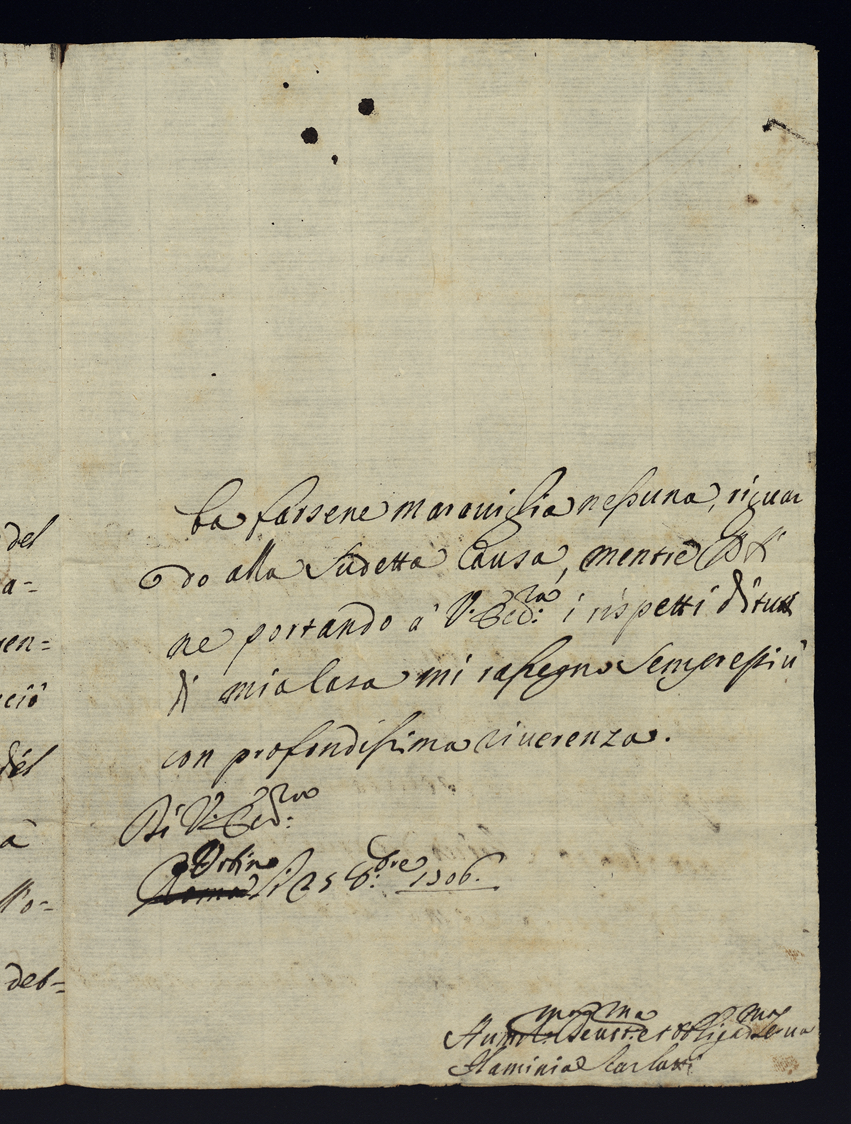 del
a-
gen=
ciò
del
à
ll'o-
deb=
ba farsene marauiglia nessuna, riguar
do alla sudetta Causa, mentre
ne portando à V. Ecc:za i rispetti di tutta
di mia Casa mi rassegno sempre più
con profondissima riuerenza.
Di V. Ecc:za
Urbino
Roma li 25 8:bre 1706.
Hum:ma Deu:ma et Oblig:ma Serua
Flaminia Scarlatti